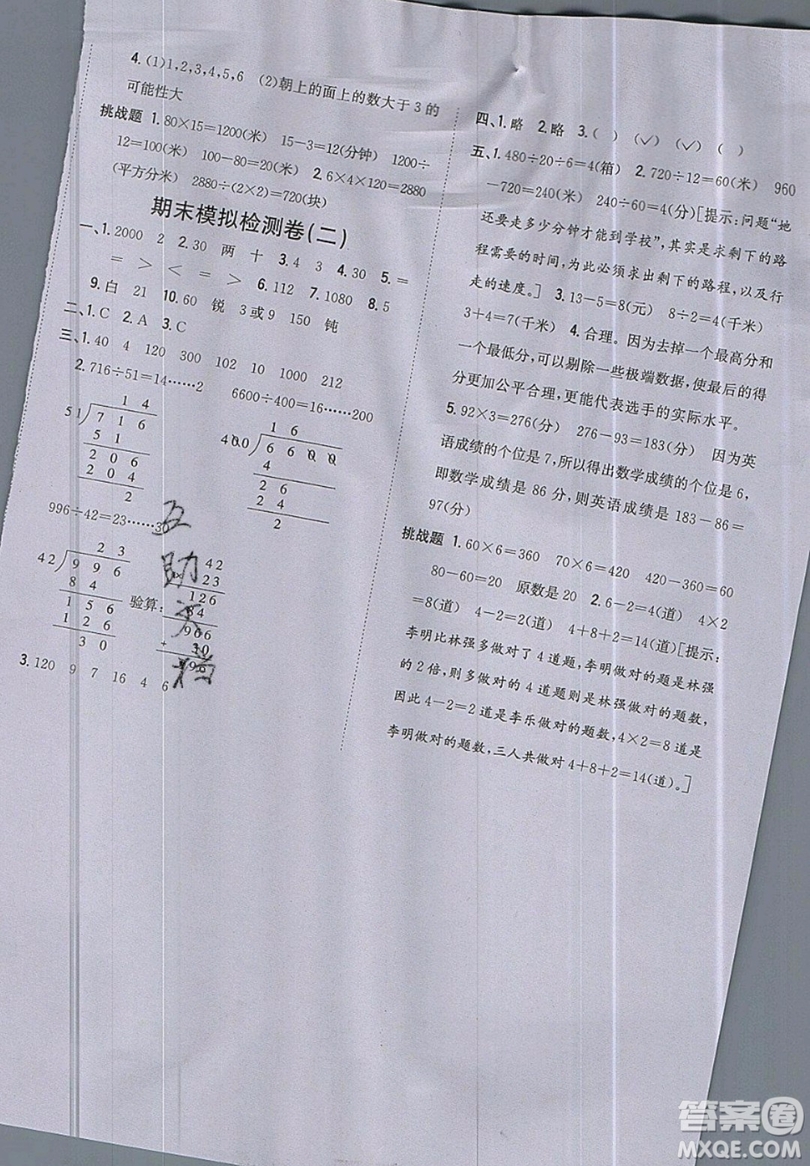 4.(1)1,2,3,4,5,6 (2)朝上的面上的数大于3的
可能性大
挑战题 1.80×15=1200(米) 15-3=12(分钟) 1200÷
12=100(米) 100-80=20(米) 2.6×4×120=2880
(平方分米) 2880÷(2×2)=720(块)
期末模拟检测卷(二)
一、1.2000 2 2.30 两 十 3.4 3 4.30 5.=
= > < = > 6.112 7.1080 8.5
9.白 21 10.60 锐 3或9 150 钝
二、1.C 2.A 3.C
三、1.40 4 120 300 102 10 1000 212
2.716÷51=14……2 6600÷400=16……200
1 4
51)7 1 6
5 1
2 0 6
2 0 4
2
1 6
400)6 6 0 0
4
2 6
2 4
2
996÷42=23……3
2 3
42)9 9 6
8 4
1 5 6
1 2 6
3 0
验算:
42
23
126
84
966
+ 30
互助文档
3.120 9 7 16 4 6
四、1.略 2.略 3.( ) (√) (√) ( )
五、1.480÷20÷6=4(箱) 2.720÷12=60(米) 960
-720=240(米) 240÷60=4(分)[提示:问题“地
还要走多少分钟才能到学校”,其实是求剩下的路
程需要的时间,为此必须求出剩下的路程,以及行
走的速度。] 3.13-5=8(元) 8÷2=4(千米)
3+4=7(千米) 4.合理。因为去掉一个最高分和
一个最低分,可以剔除一些极端数据,使最后的得
分更加公平合理,更能代表选手的实际水平。
5.92×3=276(分) 276-93=183(分) 因为英
语成绩的个位是7,所以得出数学成绩的个位是6,
即数学成绩是86分,则英语成绩是183-86=
97(分)
挑战题 1.60×6=360 70×6=420 420-360=60
80-60=20 原数是20 2.6-2=4(道) 4×2
=8(道) 4-2=2(道) 4+8+2=14(道)[提示:
李明比林强多做对了4道题,李明做对的题数是林强
的2倍,则多做对的4道题则是林强做对的题数,
因此4-2=2道是李乐做对的题数,4×2=8道是
李明做对的题数,三人共做对4+8+2=14(道)。]
答案圈
MXQE.COM